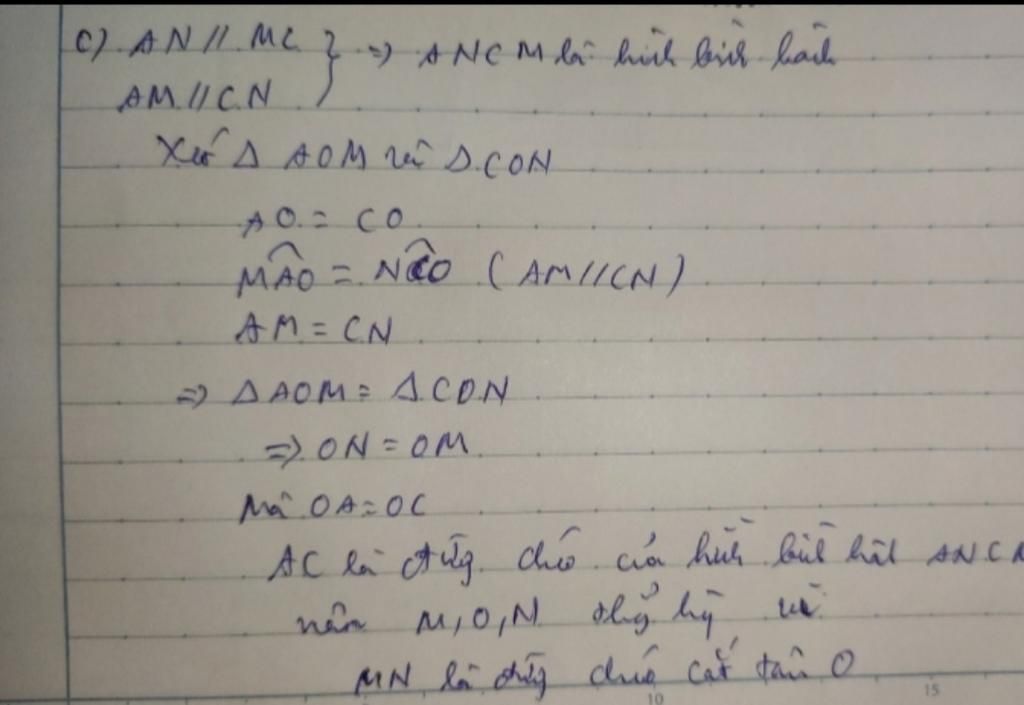 c) AN // MC } => ANCM là hình bình hành
AM // CN
Xét Δ AOM và Δ CON
AO = CO
MAO = NCO ( AM // CN )
AM = CN
=> Δ AOM = Δ CON
=> ON = OM
Mà OA = OC
AC là đường chéo của hình bình hành ANCM
nên M, O, N thẳng hàng vì
MN là đường chéo cắt tại O
10 15